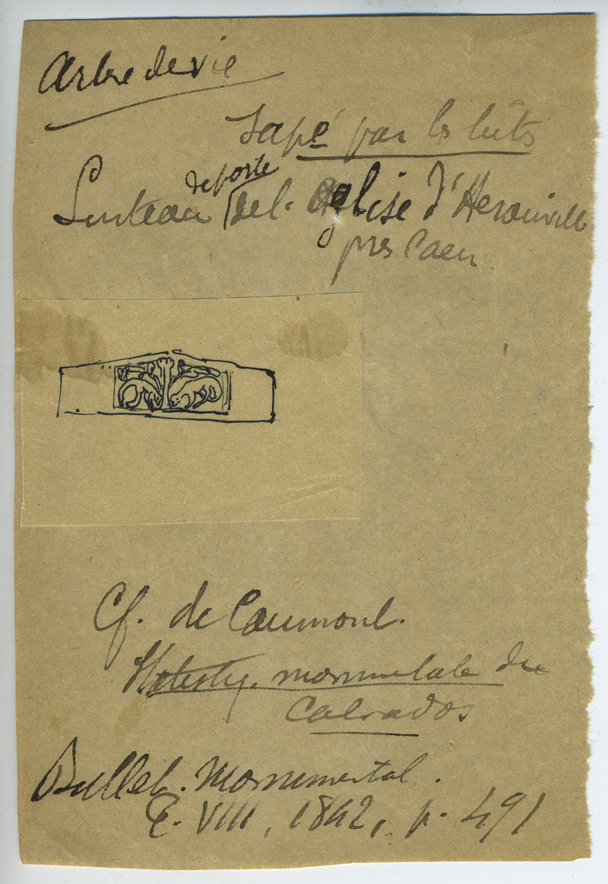 Arbre de vie
sapé par les
de porte
Linteau de l'église d'Herouville
près Caen
Cf. de Caumont.
monumentale du
Calvados
Bullet. Monumental.
T. VIII, 1842, p. 491